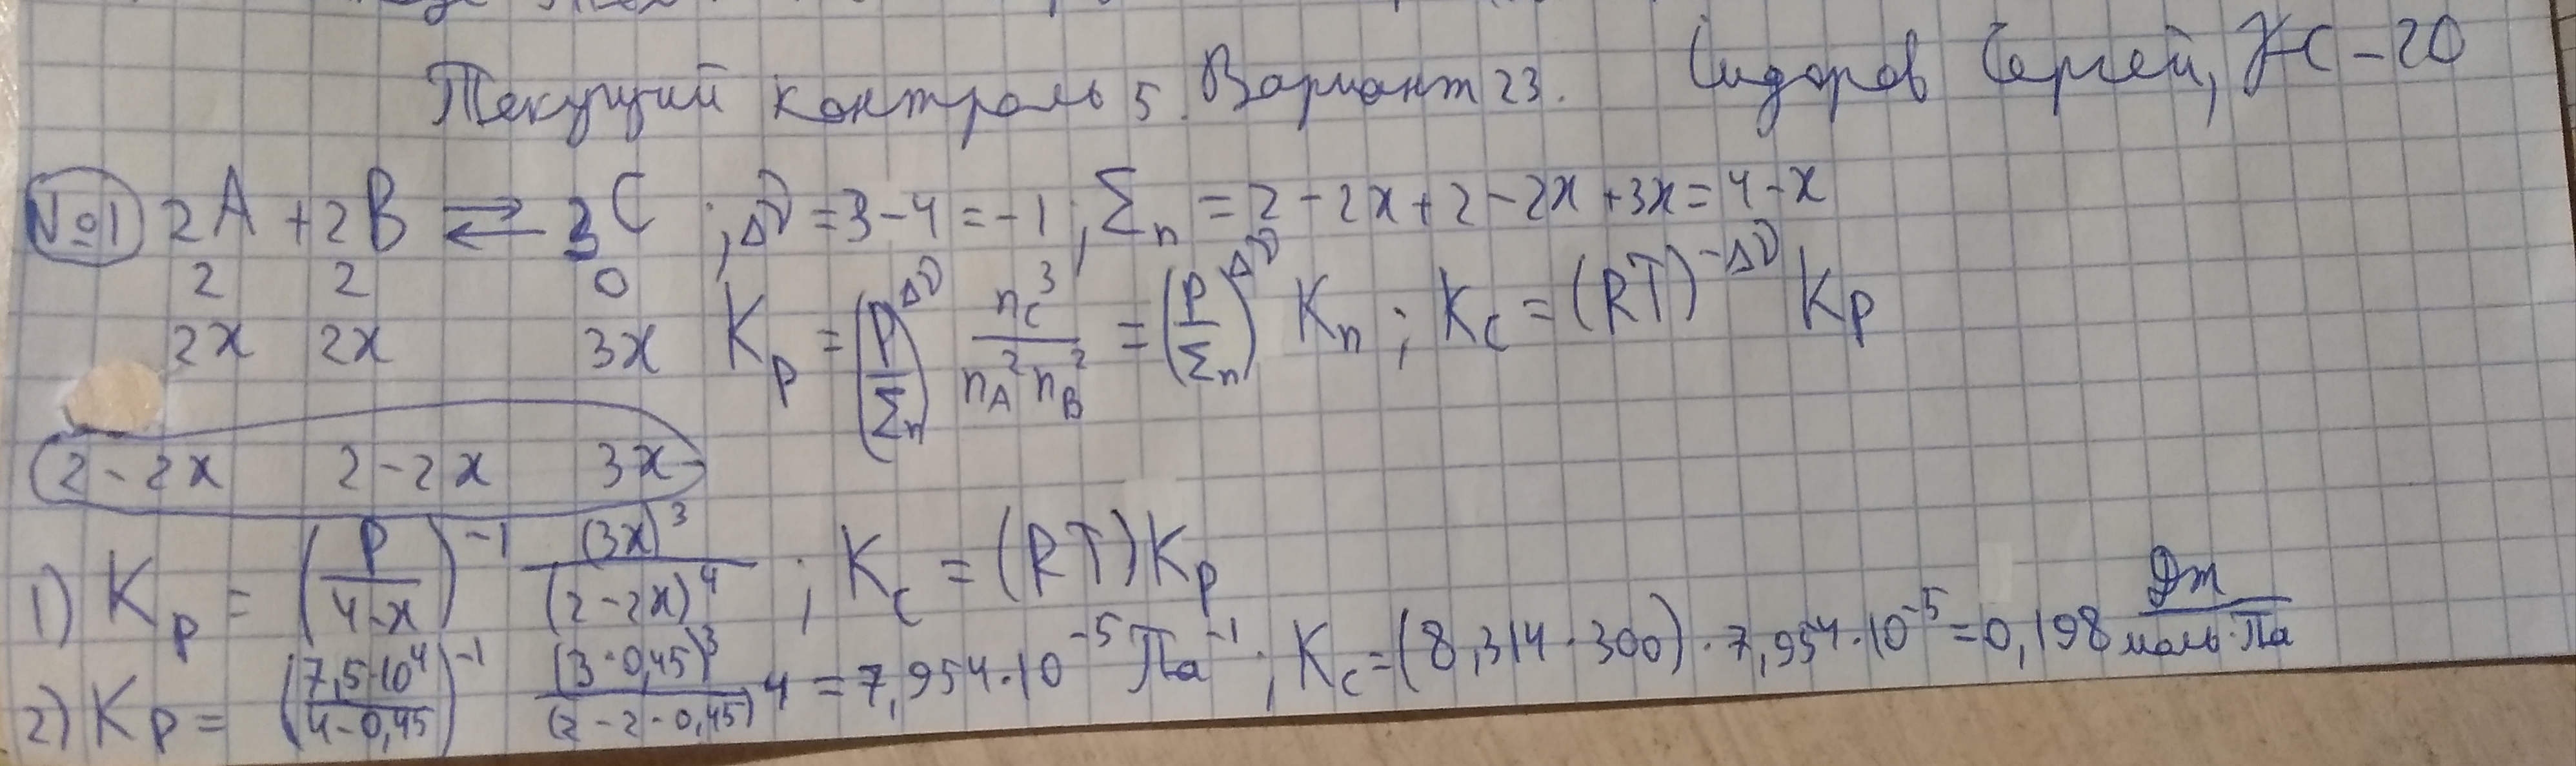 Текущий контроль 5. Вариант 23. Сидоров Сергей, КС-20
№1 2A + 2B ⇄ 3C ; Δν = 3-4 = -1 ; Σn = 2-2x+2-2x+3x = 4-x
2 2 0
2x 2x 3x Kp = (P/Σn)^Δν nC^3/(nA^2 nB^2) = (P/Σn)^Δν Kn ; Kc = (RT)^-Δν Kp
2-2x 2-2x 3x
1) Kp = (P/(4-x))^-1 (3x)^3/(2-2x)^4 ; Kc = (RT)Kp
2) Kp = (7,5·10^4/(4-0,45))^-1 (3·0,45)^3/(2-2·0,45)^4 = 7,954·10^-5 Па^-1 ; Kc = (8,314·300)·7,954·10^-5 = 0,198 Дж/(моль·Па)